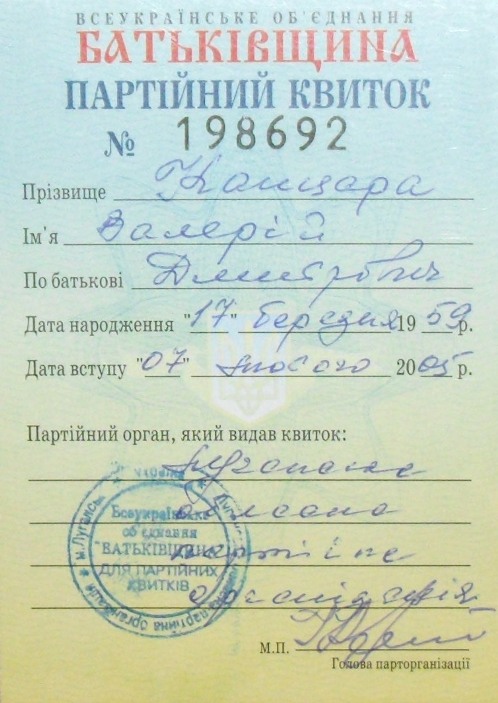 ВСЕУКРАЇНСЬКЕ ОБ'ЄДНАННЯ
БАТЬКІВЩИНА
ПАРТІЙНИЙ КВИТОК
№ 198692
Прізвище
Ім'я Валерій
По батькові Дмитрович
Дата народження "17" березня 1959р.
Дата вступу "07" лютого 2005 р.
Партійний орган, який видав квиток:
Луганська
обласна
партійна
організація
Всеукраїнське
об'єднання
"БАТЬКІВЩИНА"
ДЛЯ ПАРТІЙНИХ
КВИТКІВ
М.П.
Голова парторганізації